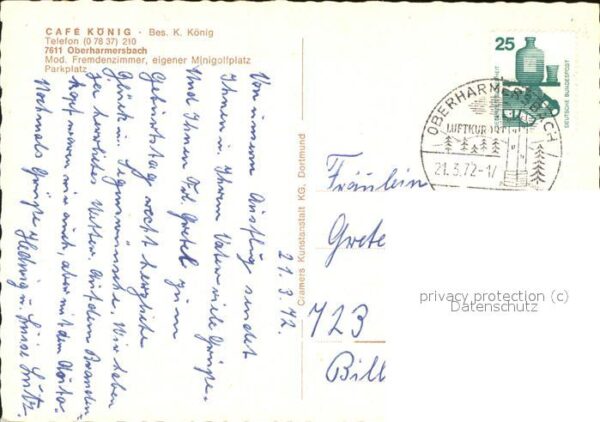 CAFÉ KÖNIG · Bes. K. König
Telefon (0 78 37) 210
7611 Oberharmersbach
Mod. Fremdenzimmer, eigener Minigolfplatz
Parkplatz
Von einem Ausflug sendet
Ihnen u. Ihrem Vater viele Grüße.
Und Ihnen Frl. Gretel zum
Geburtstag recht herzliche
Glück u. Segenswünsche. Wir haben
herrliches Wetter. Auf dem Brandenkopf
waren wir auch, aber mit dem
Nochmals Grüße Hedwig u. Luise Lutz.
21.3.72.
Cramers Kunstanstalt KG. Dortmund
25
DEUTSCHE BUNDESPOST
OBERHARMERSBACH
LUFTKURORT
21.3.72-1
Fräulein
Grete
723
Bill
privacy protection (c)
Datenschutz